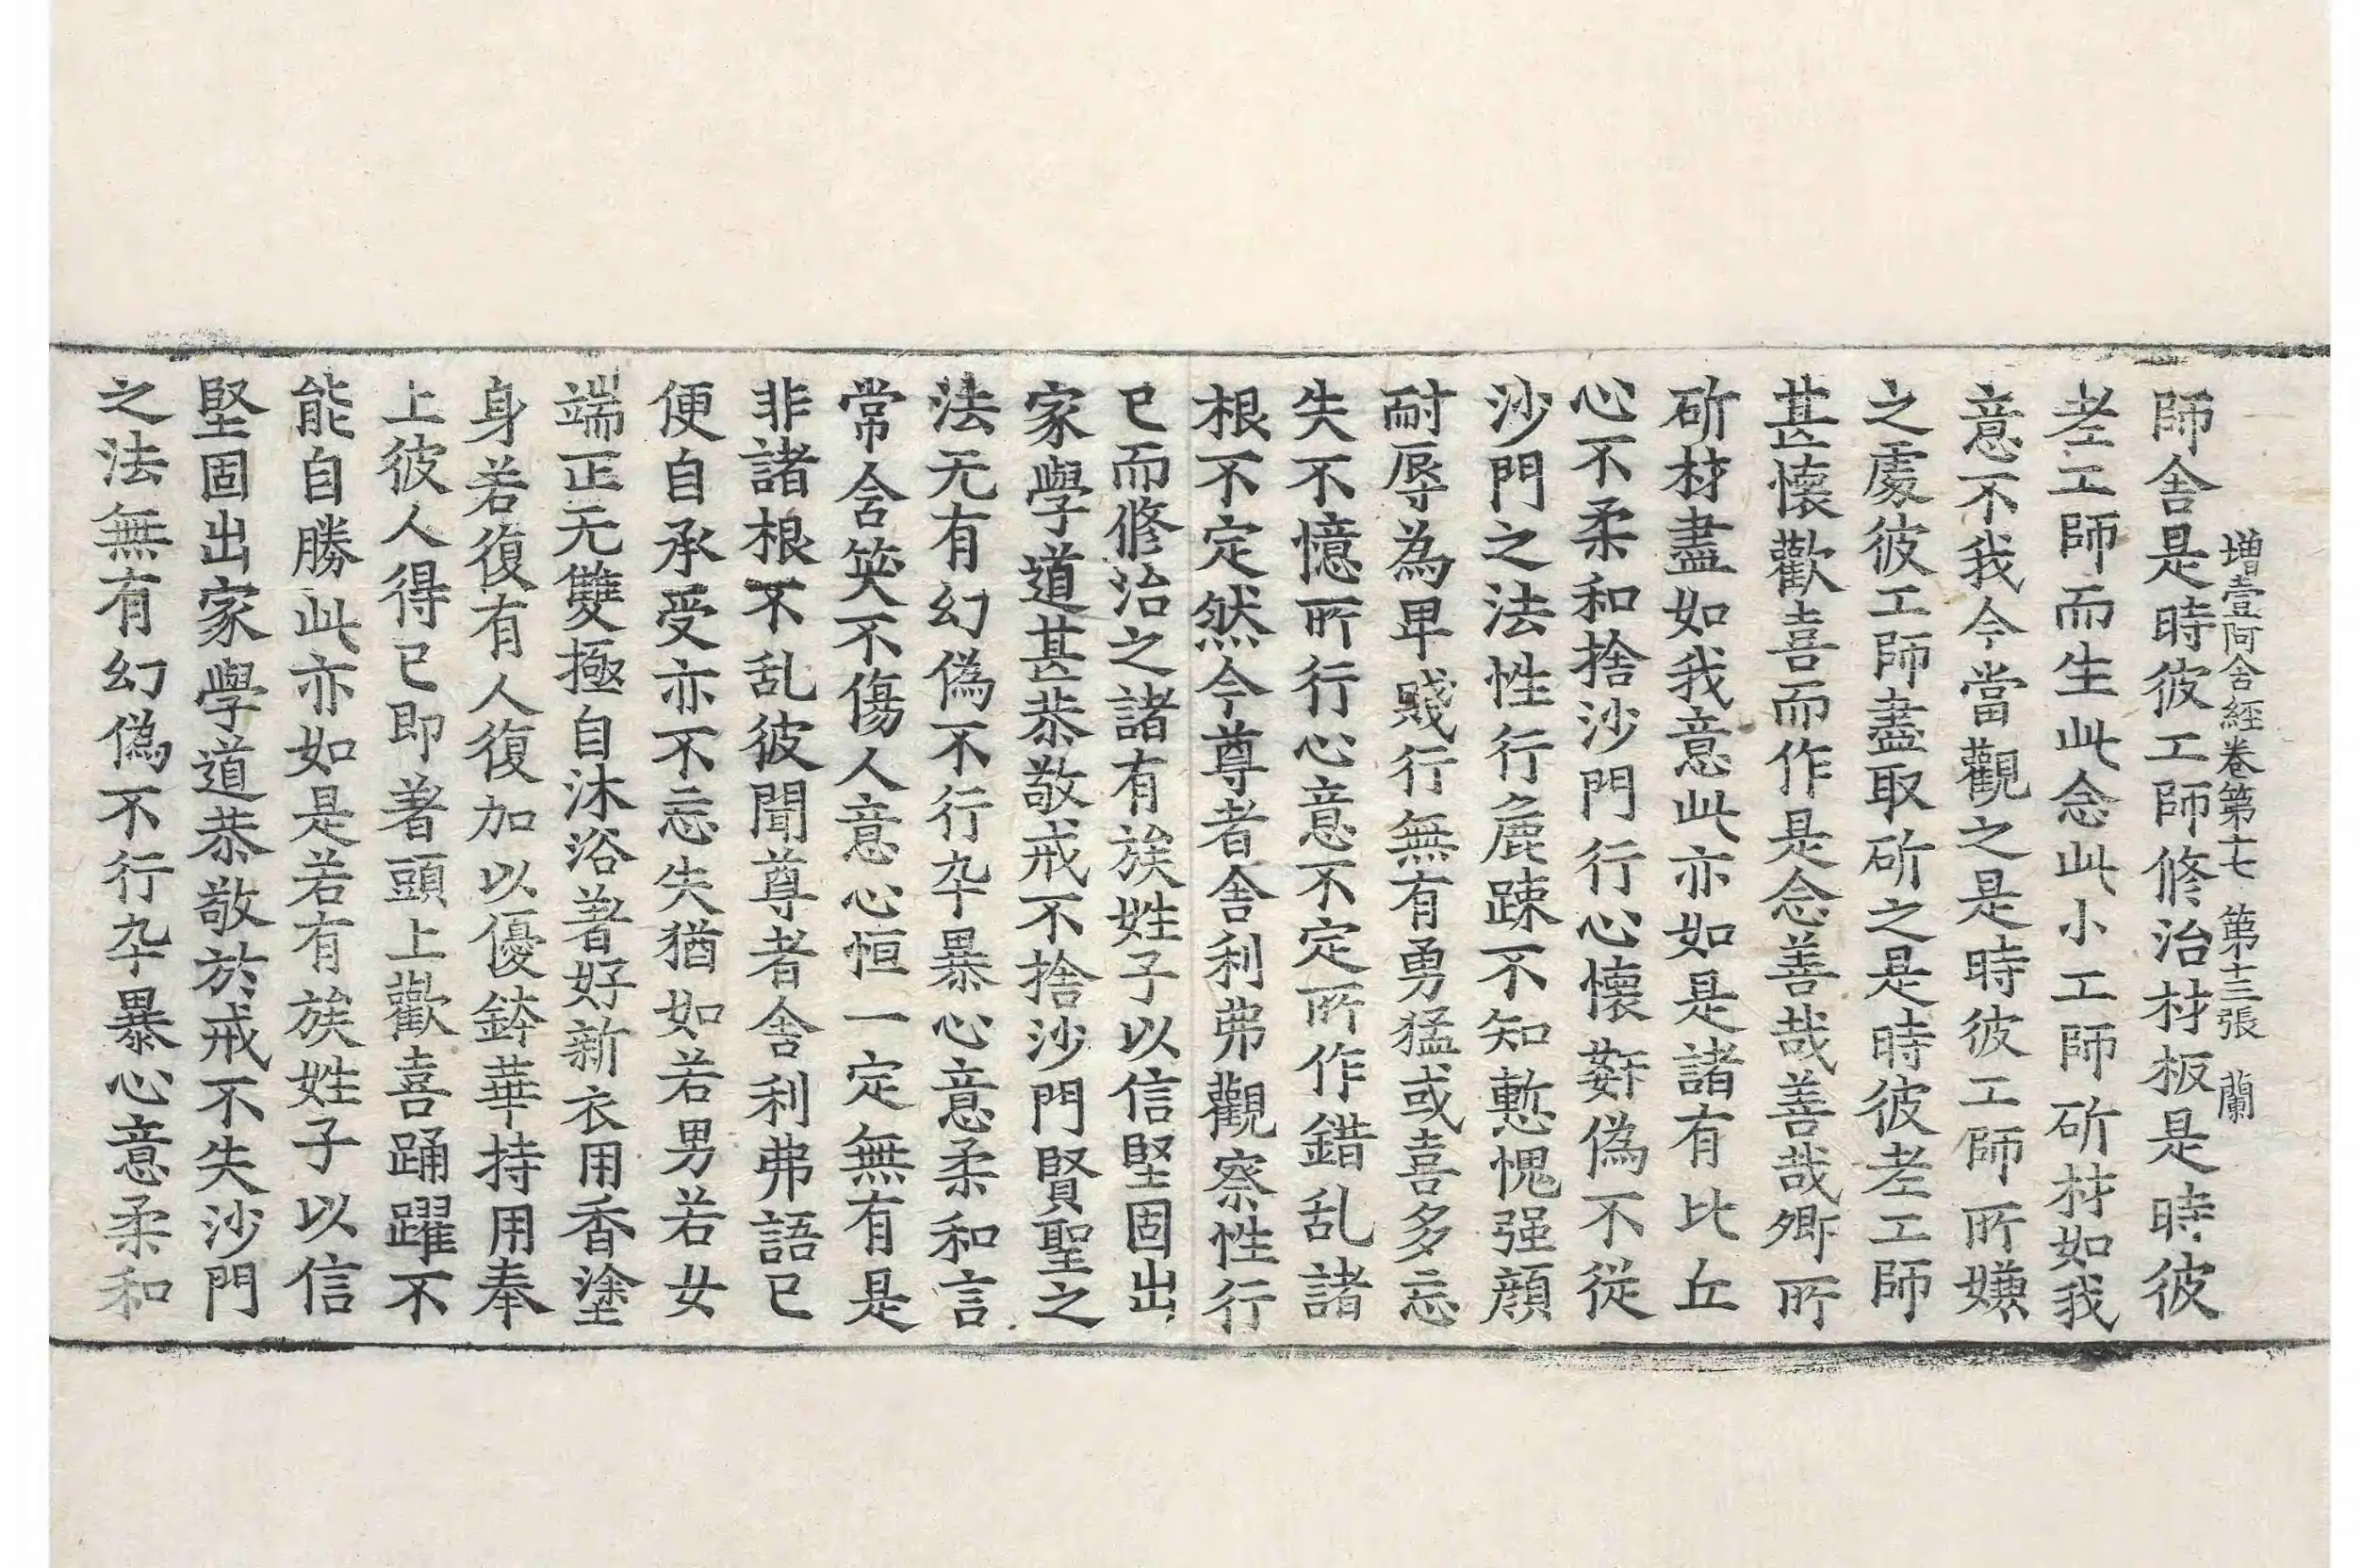 增壹阿含經卷第十七 第十三張 蘭
師舍是時彼工師修治材板是時彼
老工師而生此念此小工師斫材如我
意不我今當觀之是時彼工師所嫌
之處彼工師盡取斫之是時彼老工師
甚懷歡喜而作是念善哉善哉卿所
斫材盡如我意此亦如是諸有比丘
心不柔和捨沙門行心懷姧偽不從
沙門之法性行麁踈不知慙愧强顔
耐辱為卑賤行無有勇猛或喜多忘
失不憶所行心意不定所作錯乱諸
根不定然今尊者舍利弗觀察性行
已而修治之諸有族姓子以信堅固出
家學道甚恭敬戒不捨沙門賢聖之
法无有幻偽不行卒暴心意柔和言
常含笑不傷人意心恒一定無有是
非諸根不乱彼聞尊者舍利弗語已
便自承受亦不忘失猶如若男若女
端正无雙極自沐浴著好新衣用香塗
身若復有人復加以優鉢華持用奉
上彼人得已即著頭上歡喜踊躍不
能自勝此亦如是若有族姓子以信
堅固出家學道恭敬於戒不失沙門
之法無有幻偽不行卒暴心意柔和